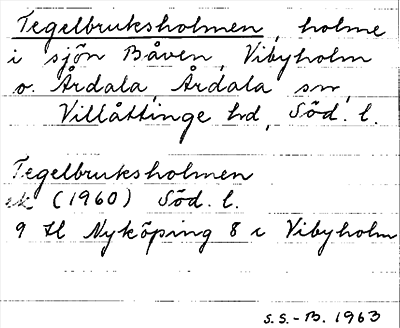 Tegelbruksholmen, holme
i sjön Båven, Vibyholm
o. Årdala, Årdala sn,
Villåttinge hd, Söd. l.
Tegelbruksholmen
ek (1960) Söd. l.
9 H Nyköping 8 c Vibyholm
S.S.-B. 1963